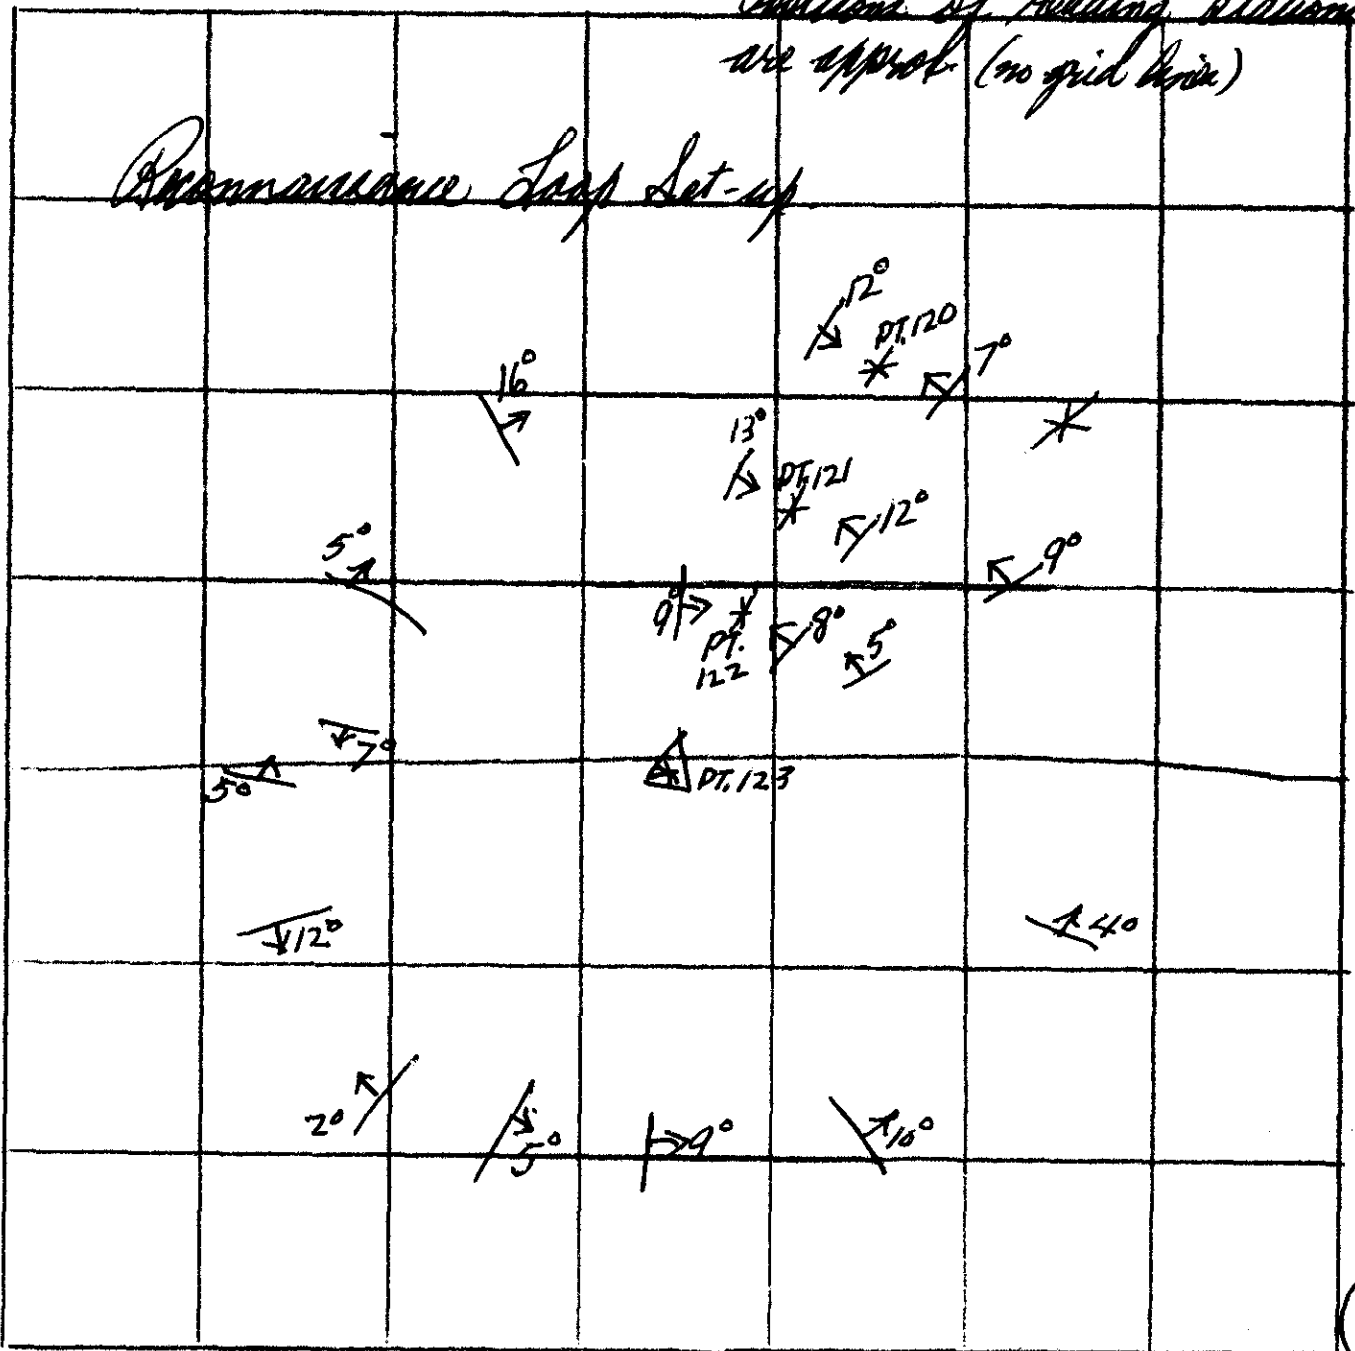 Positions of Reading Stations
are approx. (no grid lines)
Reconnaissance Loop Set-up
12°
PT. 120
7°
16°
13°
PT. 121
12°
5°
9°
9°
PT.
122
8°
5°
7°
5°
PT. 123
12°
4°
2°
5°
9°
10°